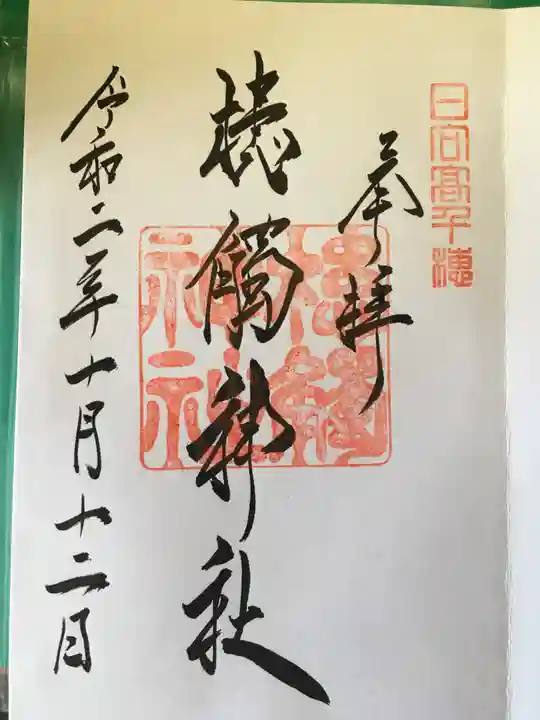 日向高千穂
奉拝
槵觸神社
令和二年十月十二日